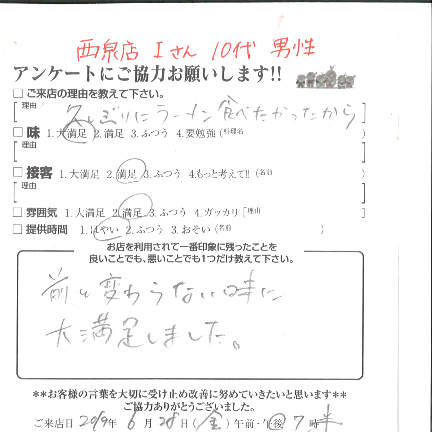 西泉店 Iさん 10代 男性
アンケートにご協力お願いします!!
□ご来店の理由を教えて下さい。
理由 久しぶりにラーメン食べたかったから
□味 1.大満足 2.満足 3.ふつう 4.要勉強(料理名 )
理由
□接客 1.大満足 2.満足 3.ふつう 4.もっと考えて!!(名前 )
理由
□雰囲気 1.大満足 2.満足 3.ふつう 4.ガッカリ[理由 ]
□提供時間 1.はやい 2.ふつう 3.おそい(名前 )
お店を利用されて一番印象に残ったことを
良いことでも、悪いことでも1つだけ教えて下さい。
前と変わらない味に
大満足しました。
**お客様の言葉を大切に受け止め改善に努めていきたいと思います**
ご協力ありがとうございました。
ご来店日 2019年 6月 28日(金)午前・午後 7時半